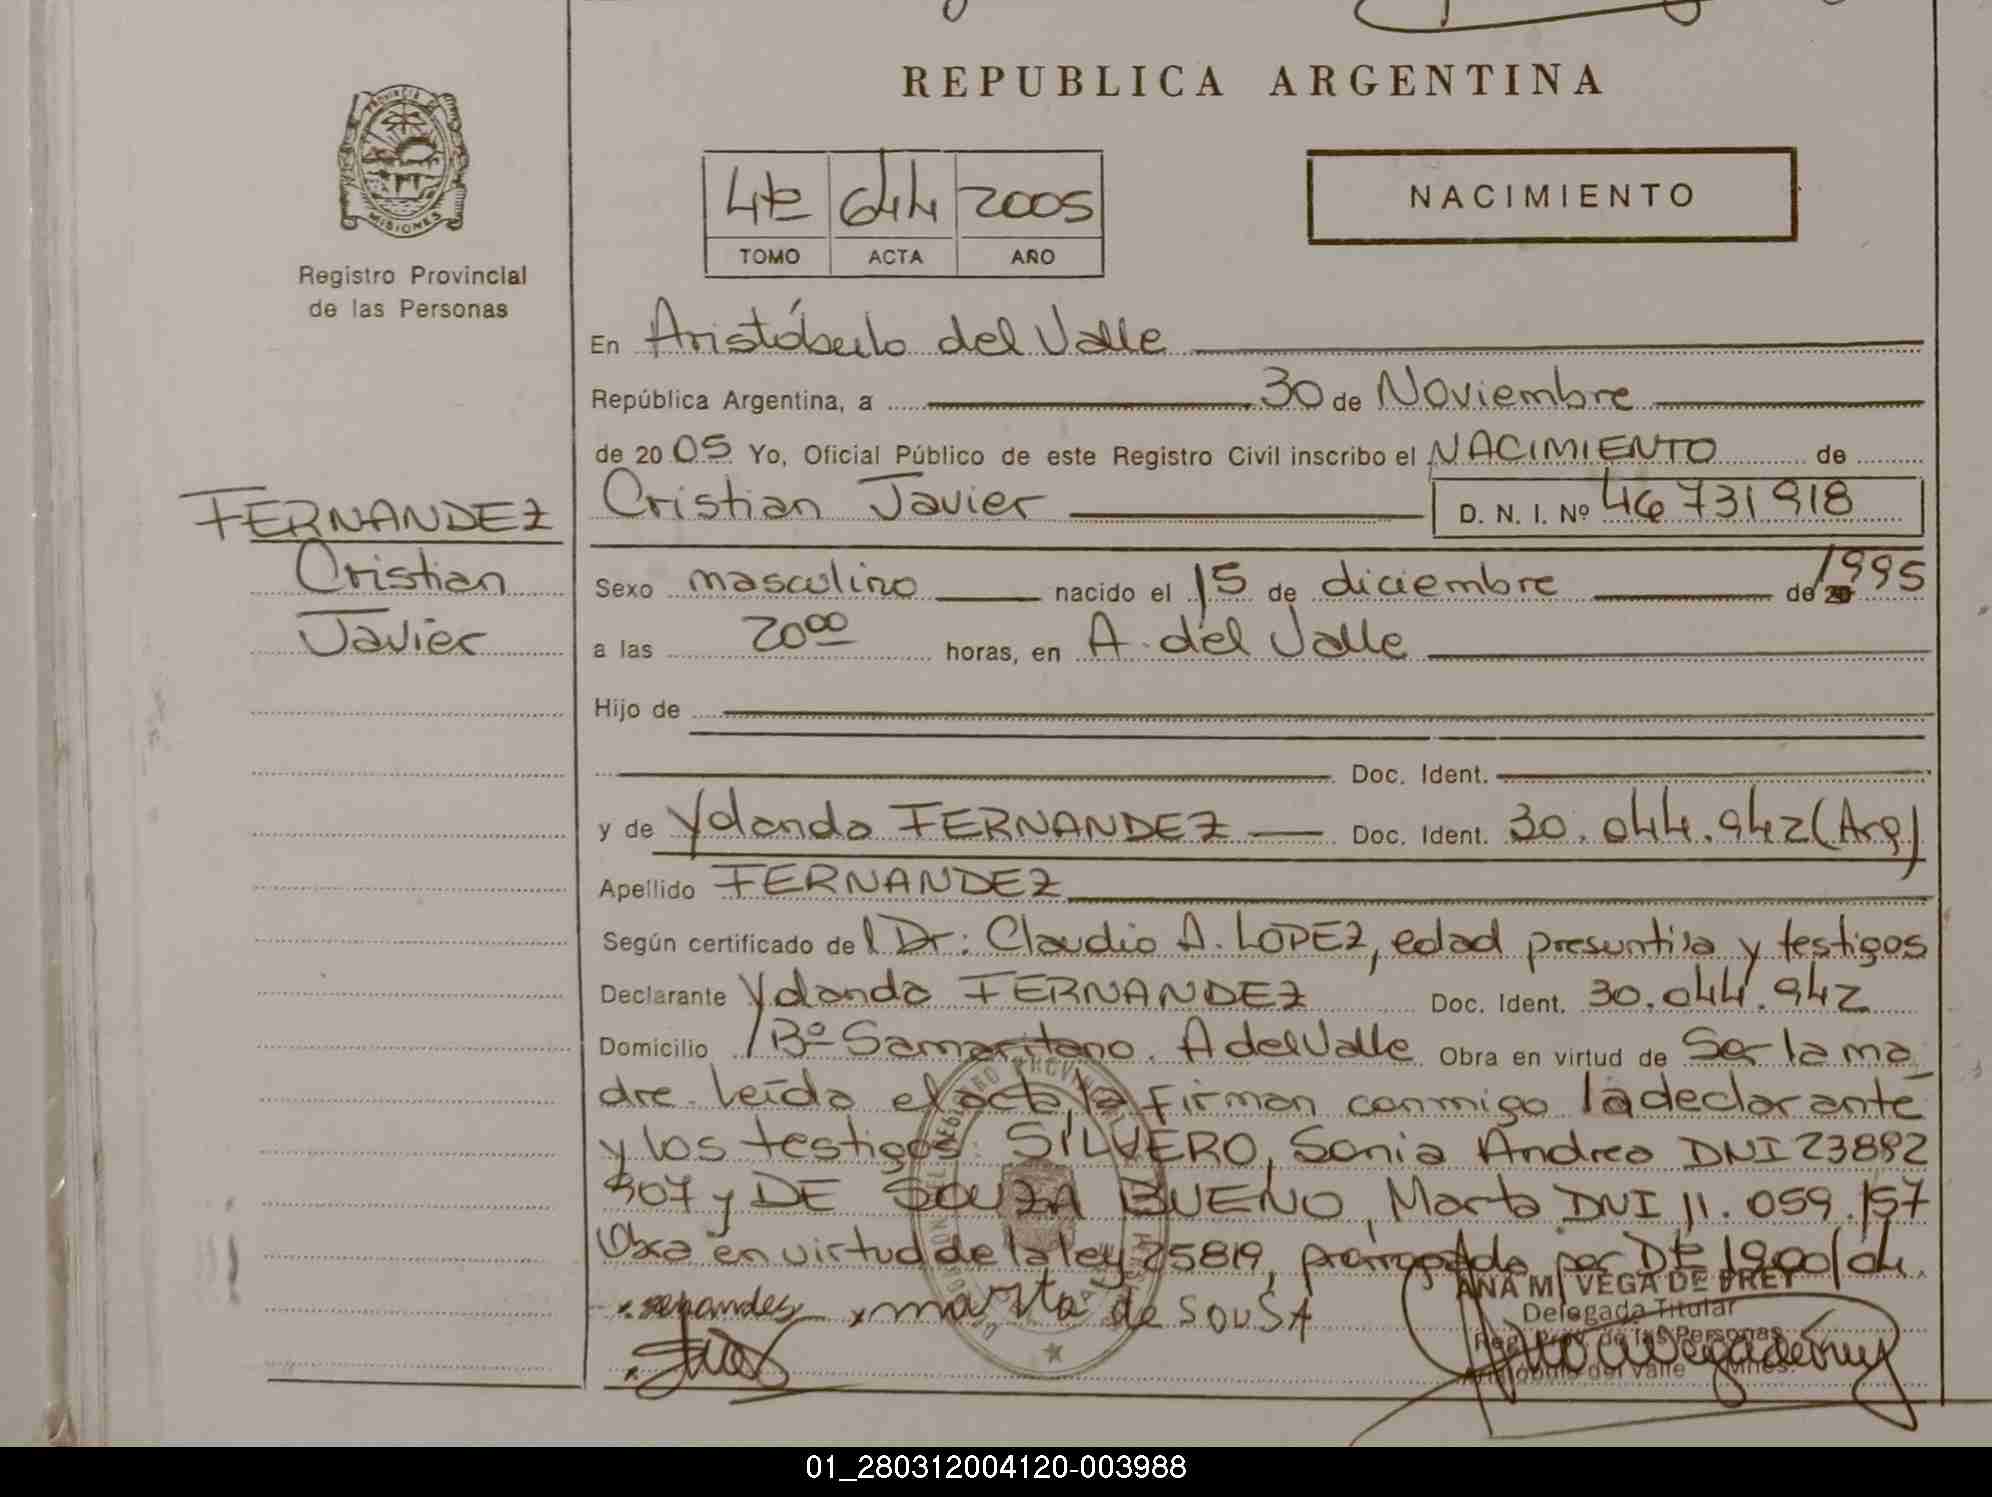 REPUBLICA ARGENTINA
PROVINCIA DE
MISIONES
Registro Provincial
de las Personas
4to 644 2005
TOMO ACTA AÑO
NACIMIENTO
En Aristóbulo del Valle
República Argentina, a 30 de Noviembre
de 20 05 Yo, Oficial Público de este Registro Civil inscribo el NACIMIENTO de
FERNANDEZ
Cristian
Javier
Cristian Javier D. N. I. Nº 46 731 918
Sexo masculino nacido el 15 de diciembre de 1995
a las 20 00 horas, en A. del Valle
Hijo de
Doc. Ident.
y de Yolanda FERNANDEZ Doc. Ident. 30.044.942 (Arg)
Apellido FERNANDEZ
Según certificado del Dr: Claudio A. LOPEZ, edad presuntiva y testigos
Declarante Yolanda FERNANDEZ Doc. Ident. 30.044.942
Domicilio Bº Samaritano. A del Valle Obra en virtud de Ser la ma
dre. Leída el acta, la firman conmigo la declarante
y los testigos SILVERO, Sonia Andrea DNI 23892
307 y DE SOUZA BUENO, Marta DNI 11.059.157
Obra en virtud de la ley 25819, prorrogada por Dto 1900/04.
marta de SouSA
ANA M. VEGA DE FREY
Delegada Titular
Reg. Prov. de las Personas
Aristóbulo del Valle Mnes.
01_280312004120-003988